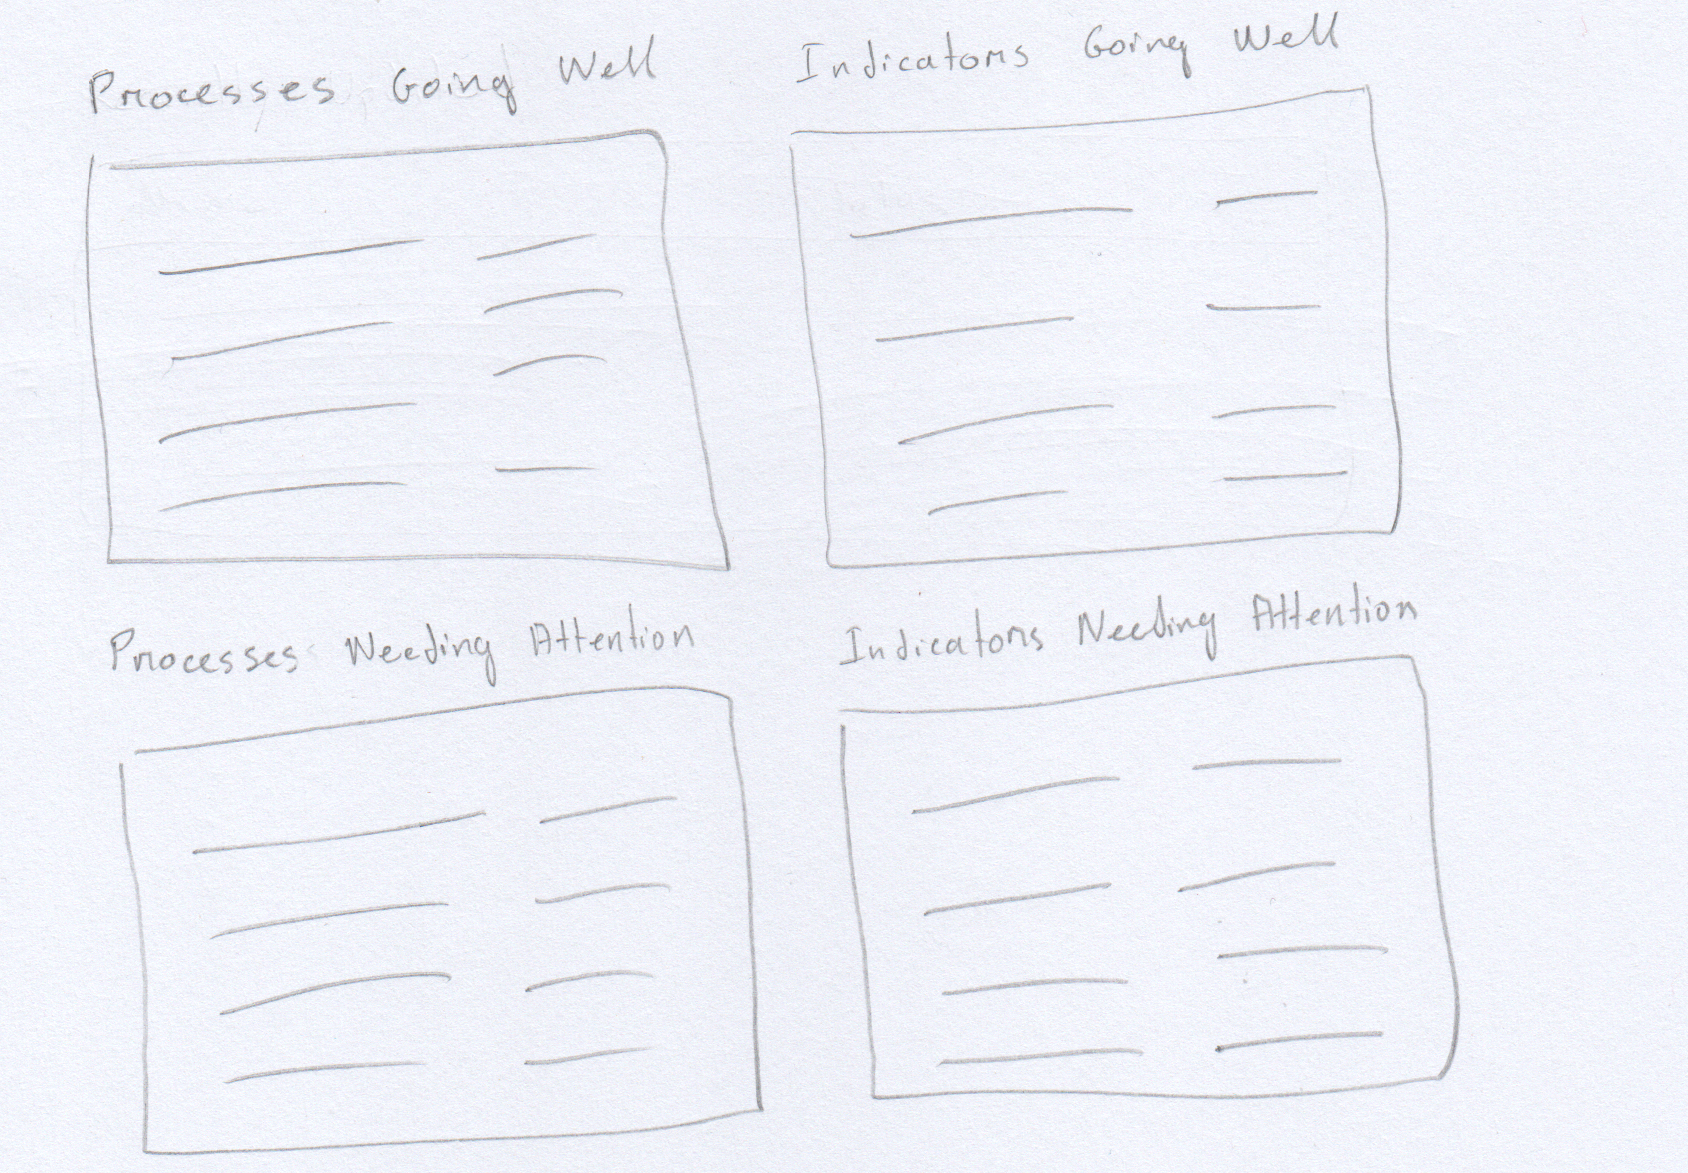 Processes Going Well
Indicators Going Well
Processes Needing Attention
Indicators Needing Attention